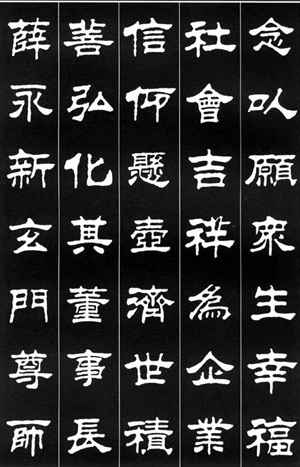 念以願衆生幸福
社會吉祥為企業
信仰懸壺濟世積
善弘化其董事長
薛永新玄門尊師